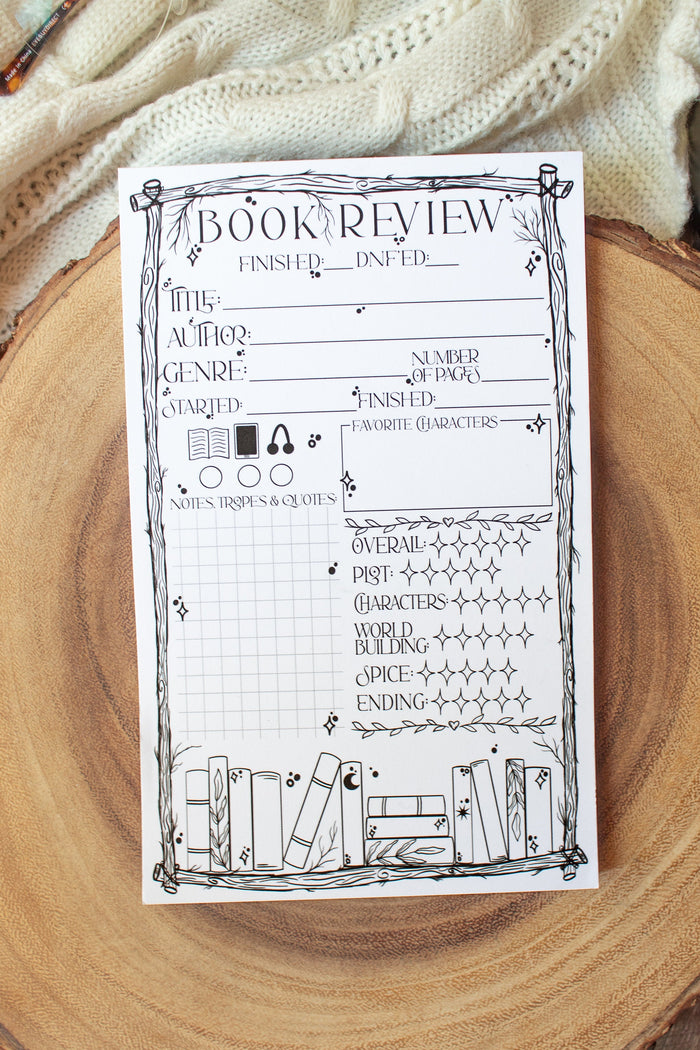 Made in China EYEBUYDIRECT
BOOK REVIEW
FINISHED:___ DNF'ED:___
TITLE:
AUTHOR:
GENRE: NUMBER OF PAGES
STARTED: FINISHED:
FAVORITE CHARACTERS
NOTES, TROPES & QUOTES:
OVERALL:
PLOT:
CHARACTERS:
WORLD
BUILDING:
SPICE:
ENDING: